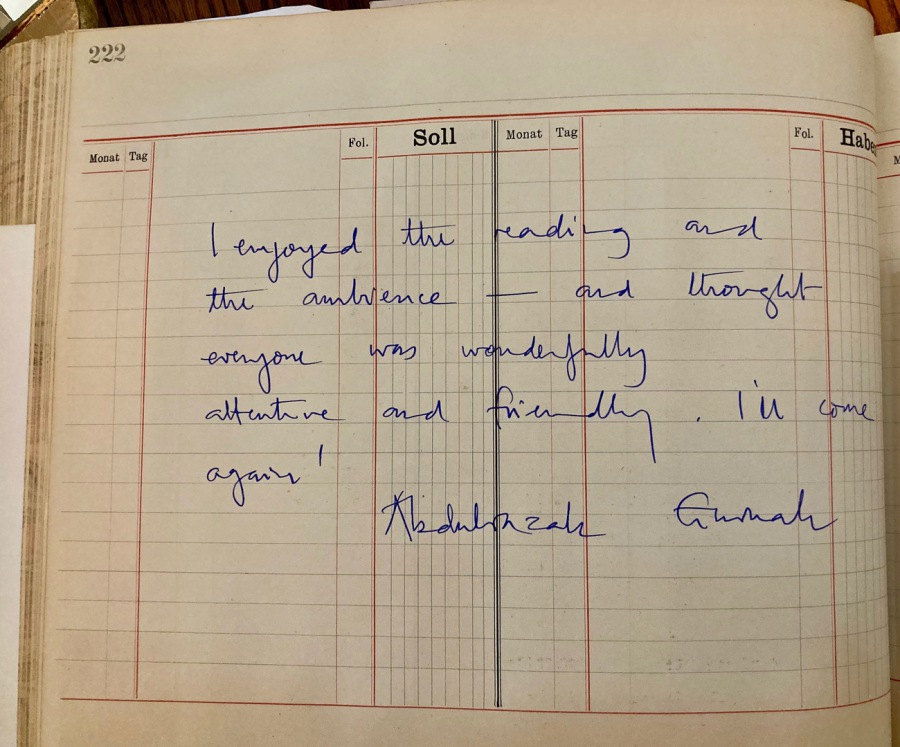 222
Monat Tag Fol. Soll Monat Tag Fol. Habe
I enjoyed the reading and
the ambience — and thought
everyone was wonderfully
attentive and friendly. I'll come
again!
Abdulrazak Gurnah